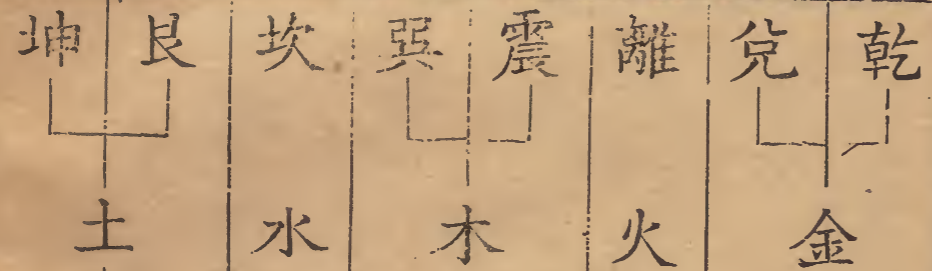 乾 兌 離 震 巽 坎 艮 坤
金 火 木 水 土